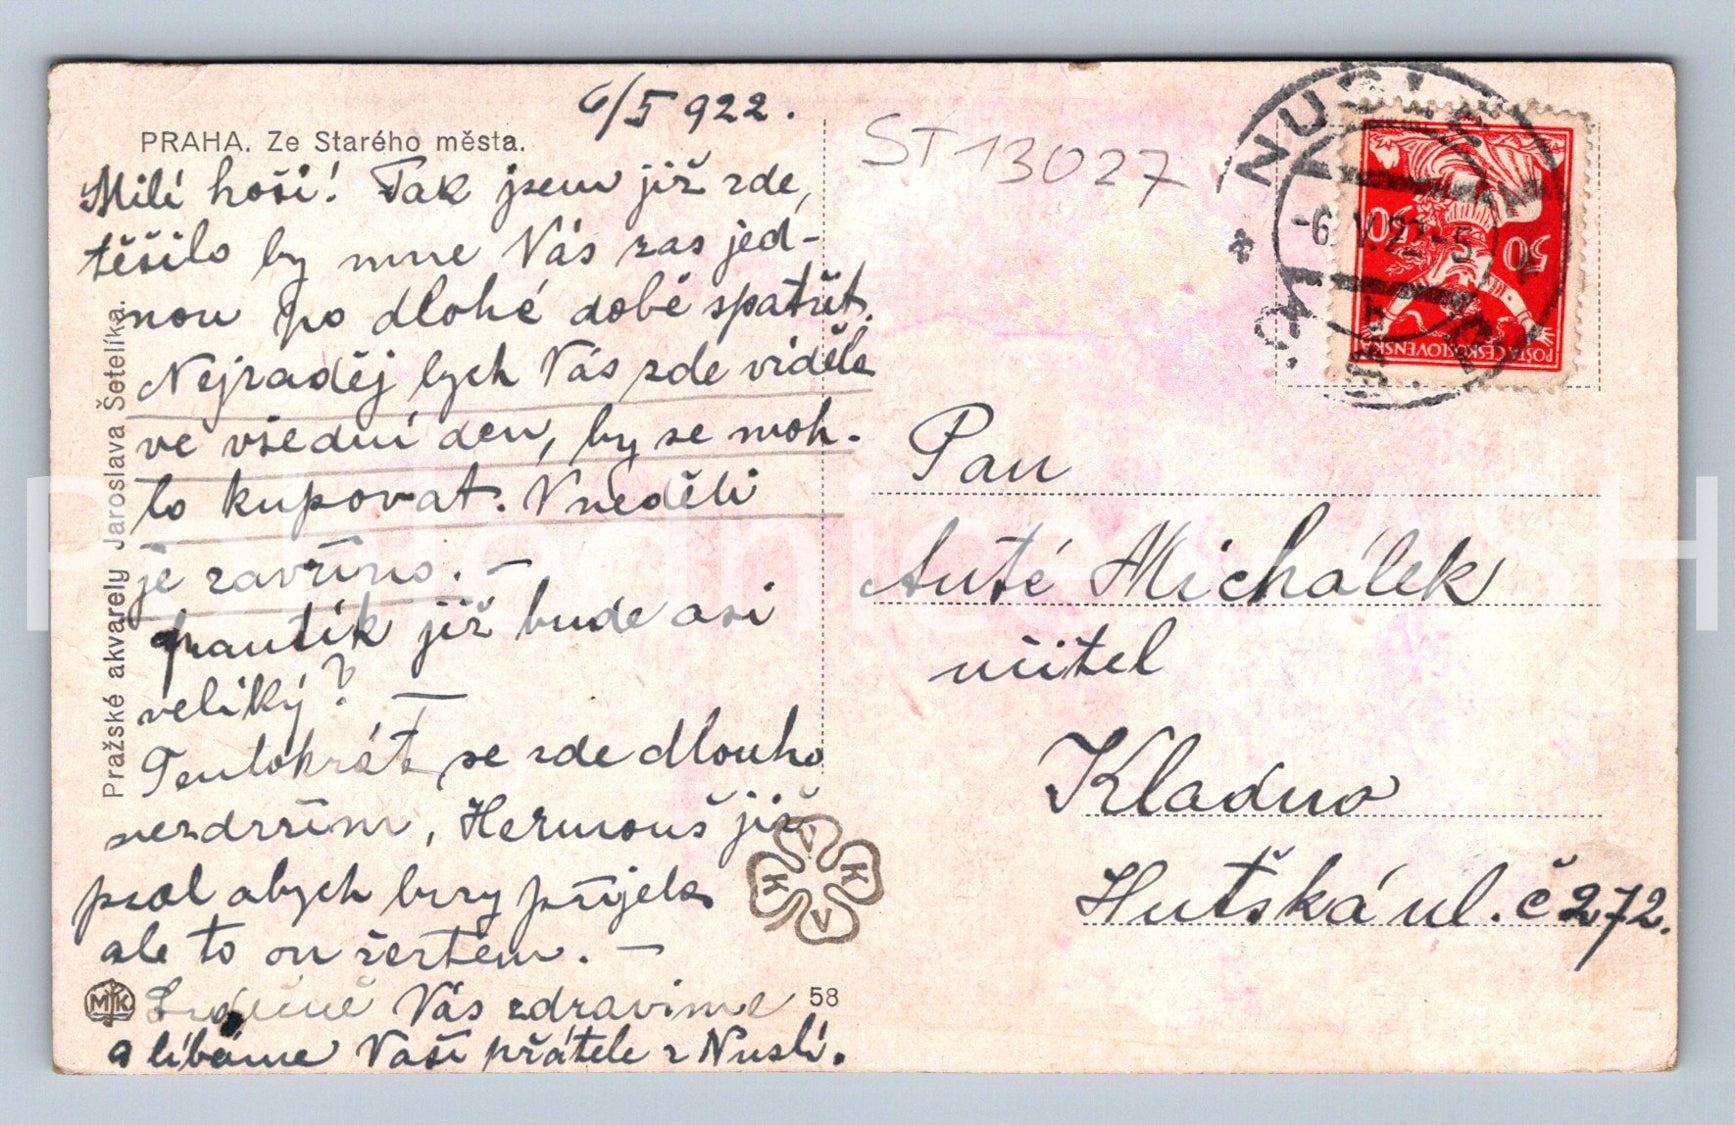 6/5 922.
PRAHA. Ze Starého města.
Milí hoši! Tak jsem již zde,
těšilo by mne Vás zas jed-
nou po dlohé době spatřit.
Nejraděj bych Vás zde viděla
ve všední den, by se moh-
lo kupovat. V neděli
je zavříno. -
Frantík již bude asi
veliký? -
Tentokrát se zde dlouho
nezdržím, Hermouš již
psal abych brzy přijela
ale to on žertem. -
Srdečně Vás zdravíme
a líbáme Vaši přátele z Nuslí.
Pražské akvarely Jaroslava Šetelíka.
MK
58
VKVK
ST 13027
NUSLE
-6.V.22-5
b
50
50
POŠTA ČESKOSLOVENSKÁ
Pan
Anté Michálek
učitel
Kladno
Hutská ul. č 272.